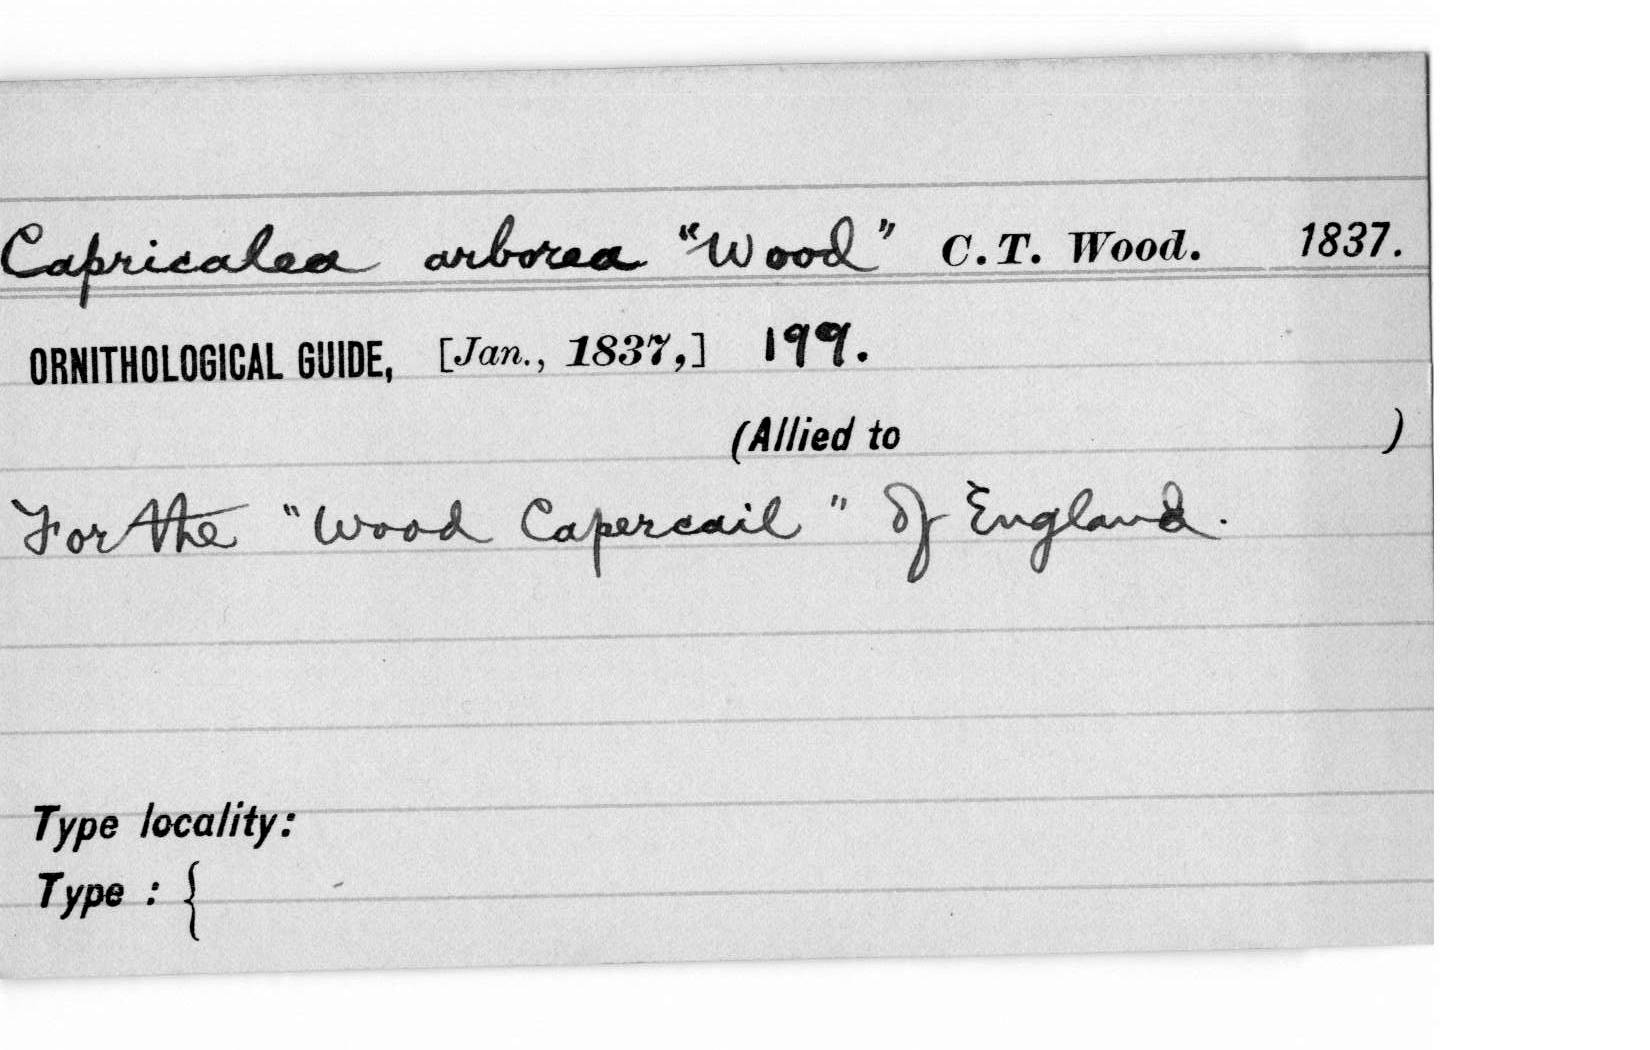 Capricalea arborea "Wood" C.T. Wood. 1837.
ORNITHOLOGICAL GUIDE, [Jan., 1837,] 199.
(Allied to )
For the "Wood Capercail" of England.
Type locality:
Type : {